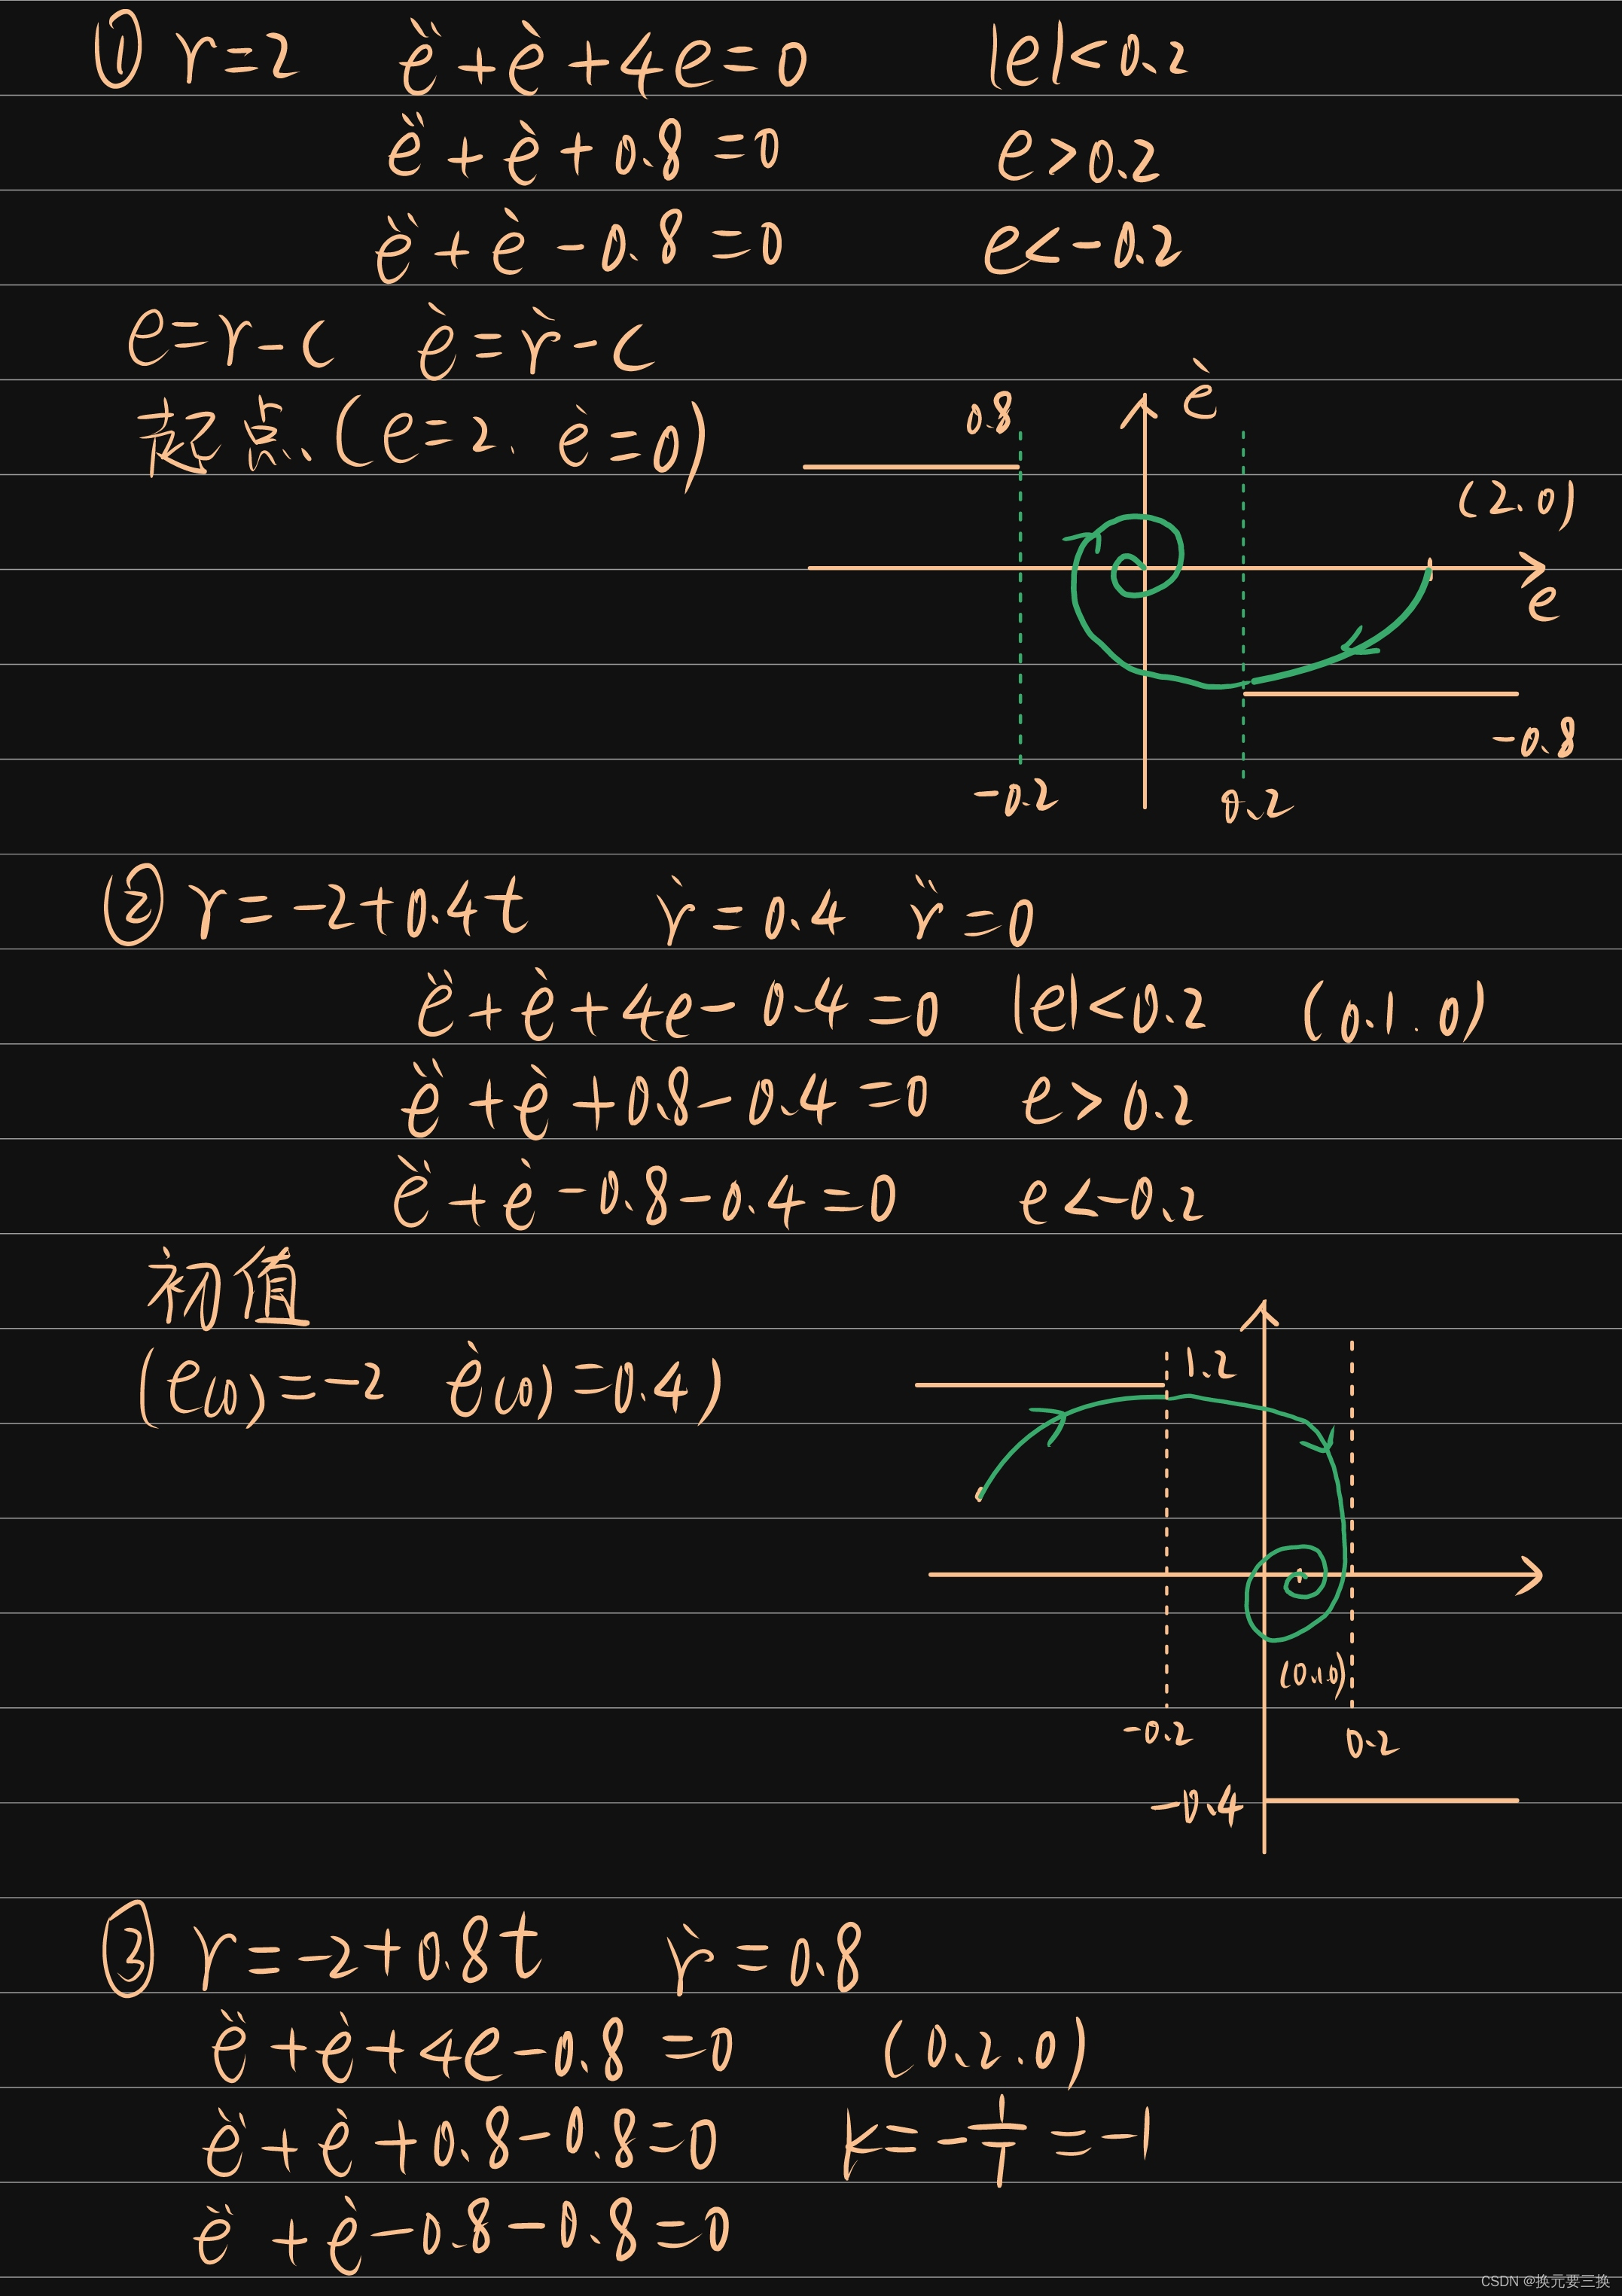 ① r=2 ë+ė+4e=0 |e|<0.2
ë+ė+0.8=0 e>0.2
ë+ė-0.8=0 e<-0.2
e=r-c ė=ṙ-c
起点(e=2. ė=0)
0.8
ė
(2.0)
e
-0.8
-0.2
0.2
② r=-2+0.4t ṙ=0.4 r̈=0
ë+ė+4e-0.4=0 |e|<0.2 (0.1.0)
ë+ė+0.8-0.4=0 e>0.2
ë+ė-0.8-0.4=0 e<-0.2
初值
(e(0)=-2 ė(0)=0.4)
1.2
(0.1.0)
-0.2
0.2
-0.4
③ r=-2+0.8t ṙ=0.8
ë+ė+4e-0.8=0 (0.2.0)
ë+ė+0.8-0.8=0 k=-1/T=-1
ë+ė-0.8-0.8=0
CSDN @换元要三换